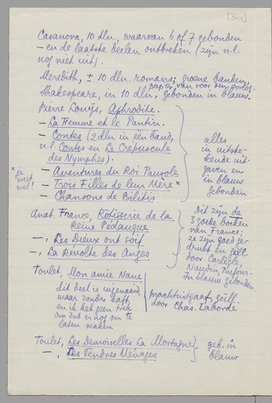 Casanova, 10 dln, waarvan 6 of 7 gebonden
- en de laatste deelen ontbreken (zijn n.l.
nog niet uit).
Meredith, ± 10 dln. romans; groene banden;
Shakespeare, in 10 dln, gebonden in blauw.
Pierre Louÿs, Aphrodite.
- La Femme et le Pantin.
- Contes (2 dln in één band,
n.l. Contes en Le Crépuscule
des Nymphes).
- Aventures du Roi Pausole
- Trois Filles de leur Mère *
- Chansons de Bilitis
alles
in uitste-
kende uit
gaven en
in blauw
gebonden
Anat. France, Rôtisserie de la
Reine Pédauque
- , Les Dieux ont soif
- , La Révolte des Anges
Dit zijn de
3 goede boeken
van France;
ze zijn goed ge-
drukt en geïll.
door Carlègle,
In blauw gebonden.
Toulet, Mon amie Nane
dit deel is ingenaaid
maar zonder kaft
en ik het geen
om dat er nog om te
laten maken
prachtuitgaaf, geïll.
door Chas. Laborde
Toulet, Les Demoiselles La Mortagne
- , Les Tendres Ménages
geb. in
blauw